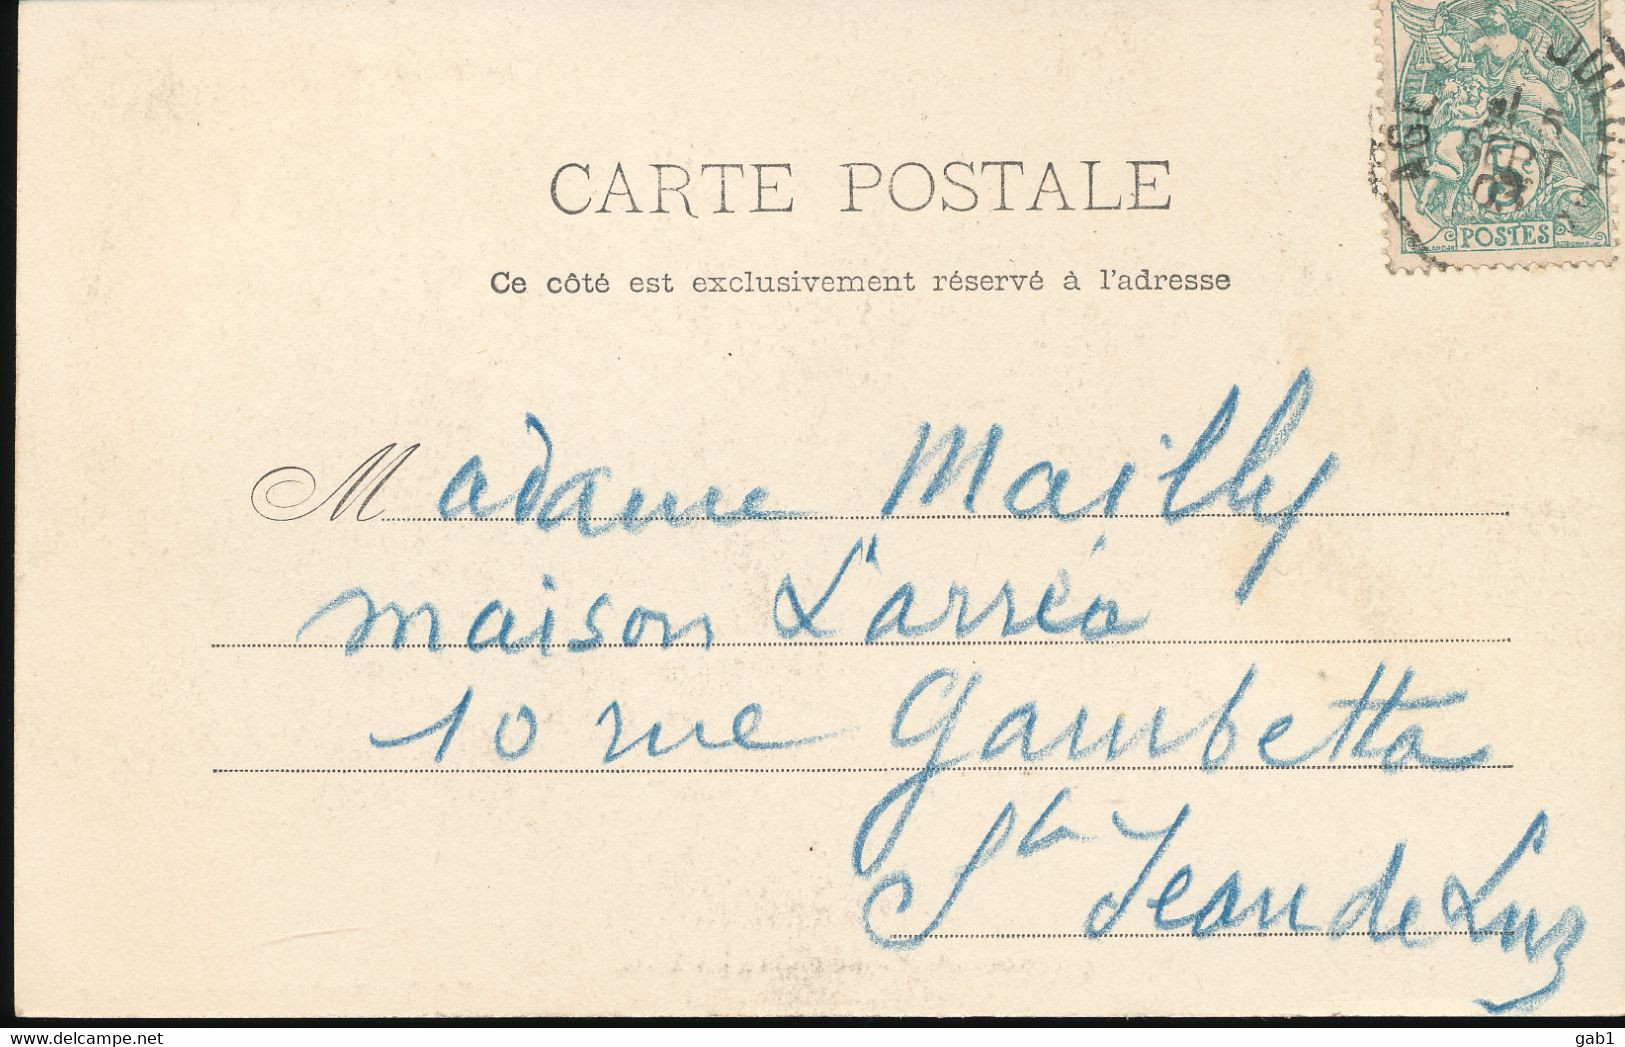 CARTE POSTALE
Ce côté est exclusivement réservé à l'adresse
Madame Mailly
maison Larréa
10 rue Gambetta
St Jean de Luz
POSTES
SEPT
03
gab1